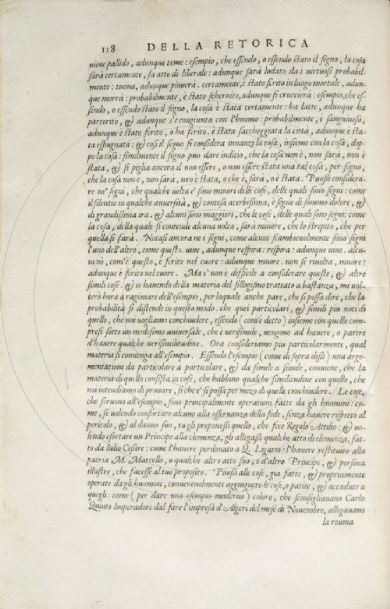 118 DELLA RETORICA
uiene pallido, adunque teme: esempio, che essendo, o essendo stato il segno, la cosa
sarà certamente, fa atto di liberale: adunque sarà lodato da i uertuosi probabil-
mente: tuona, adunque piouerà. certamente, è stato ferito in luogo mortale, adun-
que morrà: probabilmente, è stato schernito, adunque si cruccierà: esempio, che es-
sendo, o essendo stato il segno, la cosa è stata certamente: ha latte, adunque ha
partorito, & adunque s'è congiunta con l'huomo: probabilmente, è sanguinoso,
adunque è stato ferito, o ha ferito. è stata saccheggiata la città, adunque è sta-
ta espugnata: & così il segno si considera innanzi la cosa, insieme con la cosa, dop-
po la cosa: finalmente il segno può dare indicio, che la cosa non è, non sarà, non è
stata, & si piglia ancora il non essere, o non essere stata una tal cosa, per segno,
che la cosa non è, non sarà, non è stata, o che è, sarà, o è stata. Puossi considera-
re ne' segni, che qualche uolta e' sono minori delle cose, delle quali sono segni: come
il silentio in qualche auuersità, & contesa acerbissima, è segno di sommo dolore, &
di grandissima ira. & alcuni sono maggiori, che le cose, delle quali sono segni: come
la cosa, della quale si contende alcuna uolta, sarà minore, che lo strepito, che per
quella si farà. Notasi ancora ne i segni, come alcuni scambieuolmente sono segni
l'uno dell'altro, come questo. uiue, adunque respira: respira: adunque uiue. alcu-
ni nò, com'è questo, è ferito nel cuore: adunque muore. non si riuolta, muore:
adunque è ferito nel cuore. Ma e' non è difficile a considerare queste, & altre
simili cose. & io hauendo della materia del sillogismo trattato a bastanza, mi uol-
terò hora a ragionare dell'esempio, per loquale anche pare, che si possa dire, che la
probabilità si distende in questo modo. che quei particulari, & simili più noti di
quello, che noi uogliamo conchiudere, essendo (com'è detto) insieme con quello com-
presi sotto un medesimo uniuersale, che è uersimile, uengono ad hauere, o parere
d'hauere qualche uerisimilitudine. Ora consideriamo più particolarmente, qual
materia si conuenga all'esempio. Essendo l'esempio (come di sopra dissi) una argo-
mentatione da particolare a particolare, & da simile a simile, conuiene, che la
materia di quello consista in cose, che habbiano qualche similitudine con quello, che
noi intendiamo di prouare, sì che e' si possa per mezo di quelle conchiudere. Le cose,
che seruono all'esempio, sono principalmente operationi fatte da gli huomini: co-
me, se uolendo confortare alcuno alla osseruanza della fede, senza hauere rispetto al
pericolo, & al danno suo, tu gli proponessi quello, che fece Regolo Attilio: & uo-
lendo esortare un Principe alla clemenza, gli allegassi qualche atto di clemenza, fat-
to da Iulio Cesare: come l'hauere perdonato a Q. Ligario: l'hauere restituito alla
patria M. Marcello, o qualche altro atto suo, o d'altro Principe, & persona
illustre, che facesse al tuo proposito. Puossi alle cose, già fatte, & propriamente
operate da gli huomini, conueneuolmente aggiugnere le cose, o patite, & accadute a
quegli: come (per dare uno esempio moderno) coloro, che sconsigliauano Carlo
Quinto Imperadore dal fare l'impresa d'Algeri del mese di Nouembre, allegauano
la rouina